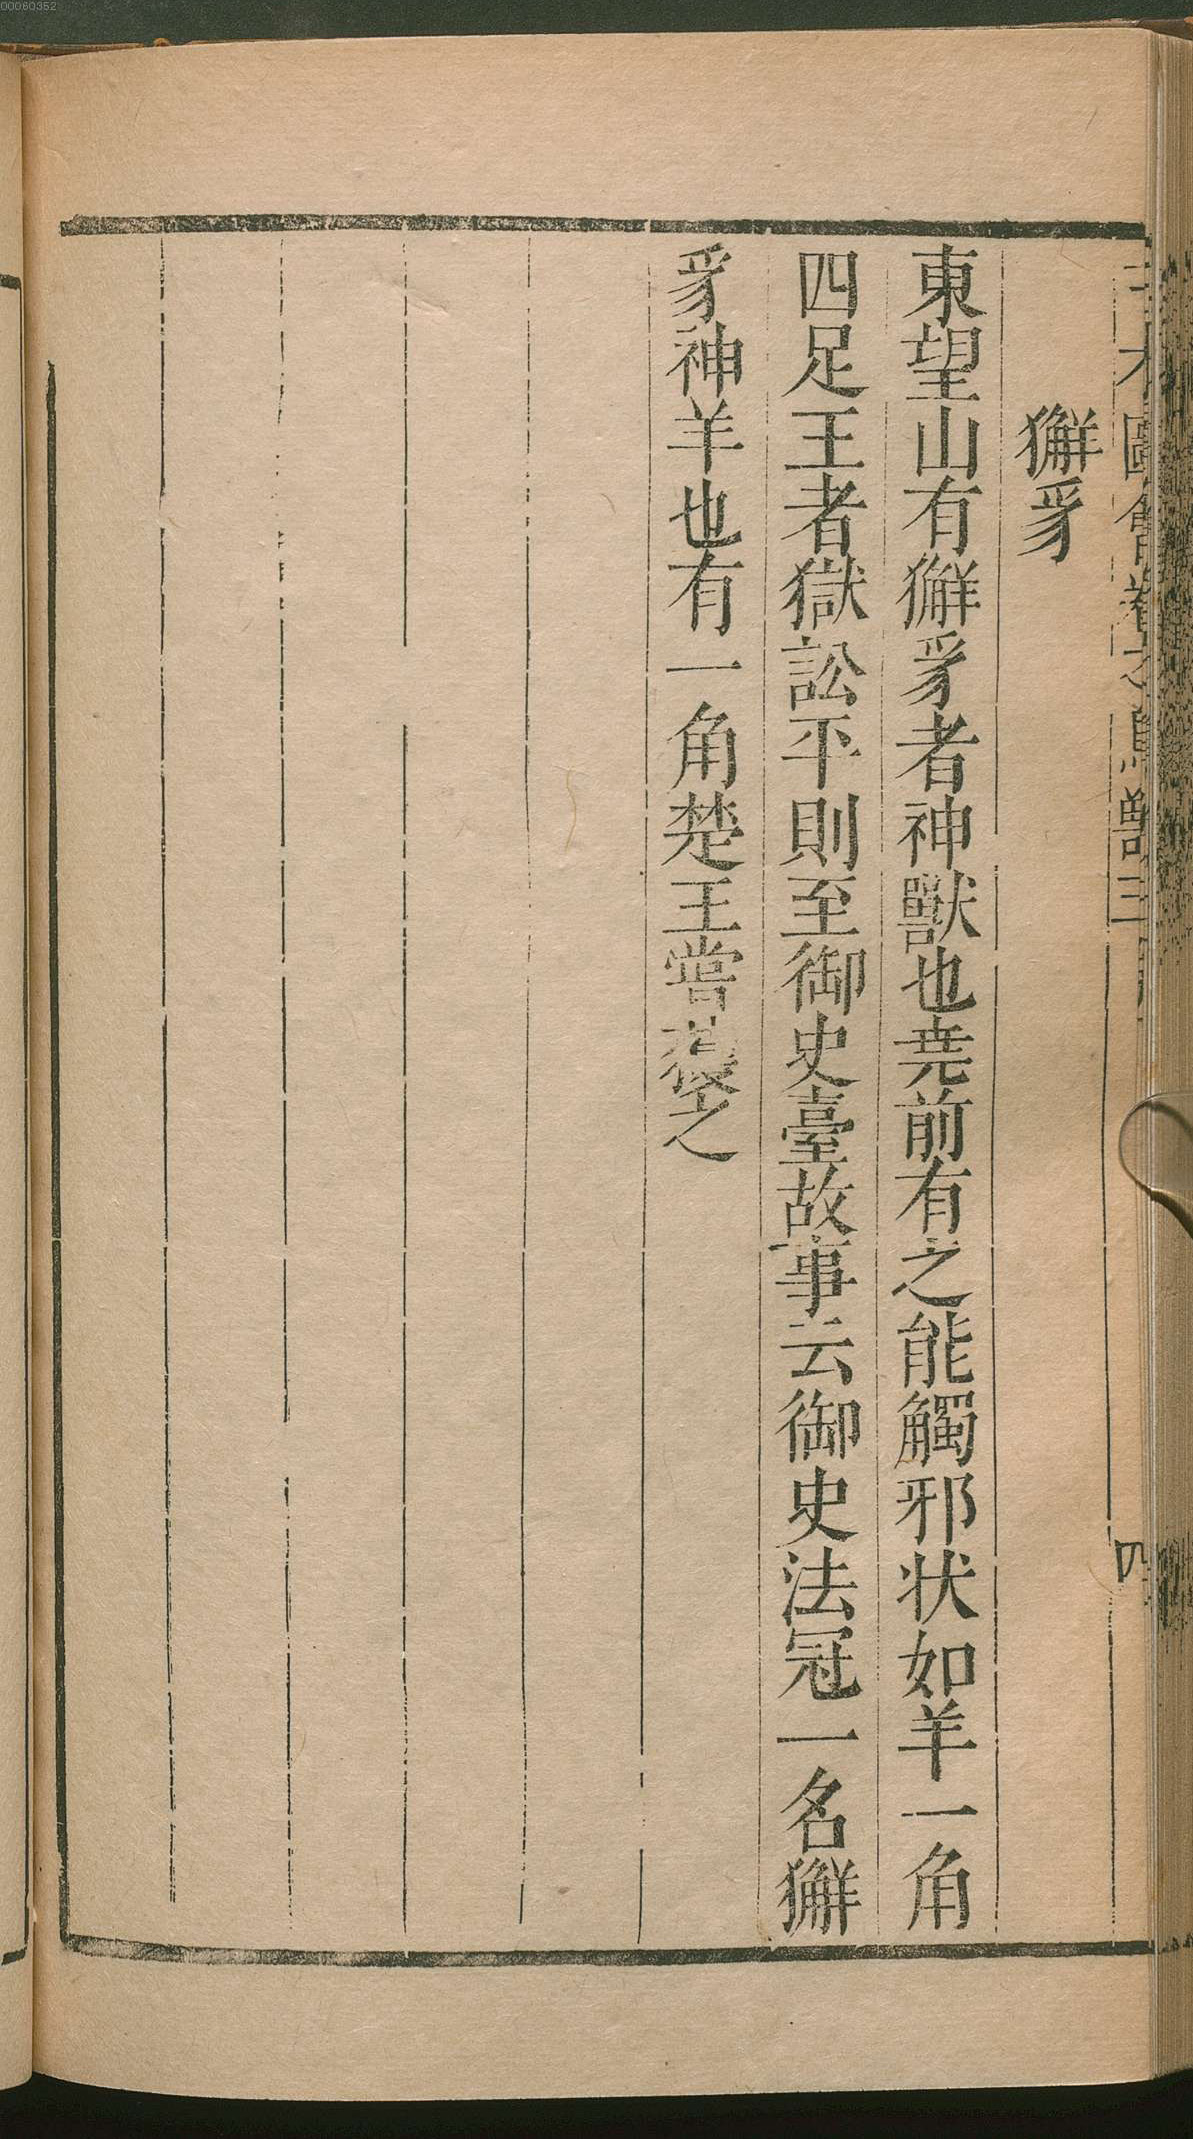 00060352
圖會
獸三
四
獬豸
東望山有獬豸者神獸也堯前有之能觸邪状如羊一角
四足王者獄訟平則至御史臺故事云御史法冠一名獬
豸神羊也有一角楚王嘗獲之